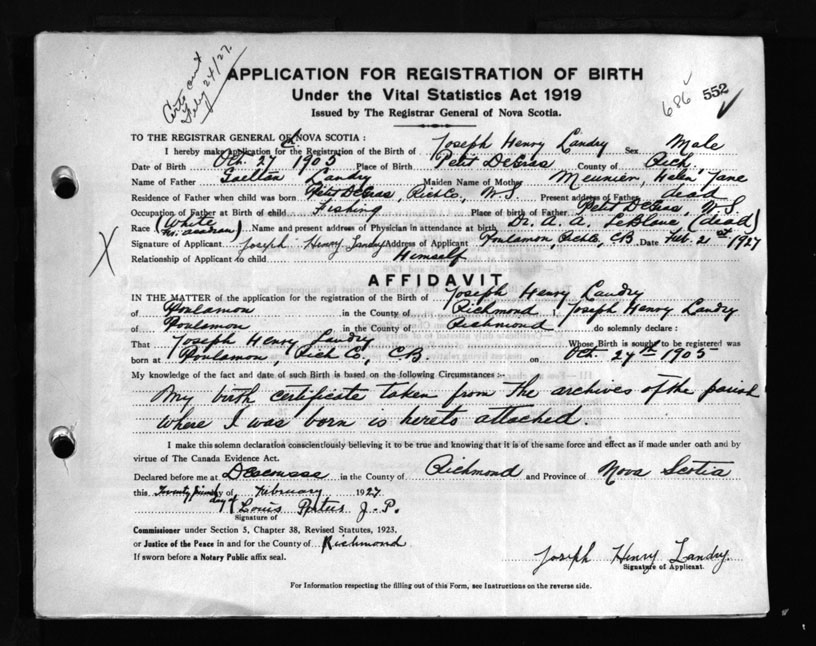 Certs out
Feby 24/27.
686 552
APPLICATION FOR REGISTRATION OF BIRTH
Under the Vital Statistics Act 1919
Issued by The Registrar General of Nova Scotia.
TO THE REGISTRAR GENERAL OF NOVA SCOTIA :
I hereby make application for the Registration of the Birth of Joseph Henry Landry Sex Male
Date of Birth Oct. 27 1905 Place of Birth Petit DeGras County of Rich.
Name of Father Landry Maiden Name of Mother Meunier, Helen Jane
Residence of Father when child was born Petit DeGras, Rich Co, N S Present address of Father dead
Occupation of Father at Birth of child Fishing Place of birth of Father Petit DeGras, N.S.
Race (White Name and present address of Physician in attendance at birth Dr. A. A. LeBlanc (dead)
Signature of Applicant Joseph Henry Landry Address of Applicant Poulamon, Rich Co, CB. Date Feb. 21st 1927
Relationship of Applicant to child Himself
AFFIDAVIT
IN THE MATTER of the application for the registration of the Birth of Joseph Henry Landry
of Poulamon in the County of Richmond I, Joseph Henry Landry
of Poulamon in the County of Richmond do solemnly declare :
That Joseph Henry Landry Whose Birth is sought to be registered was
born at Poulamon, Rich Co, CB. on Oct. 27th 1905
My knowledge of the fact and date of such Birth is based on the following Circumstances :-
My birth certificate taken from the archives of the parish
where I was born is hereto attached.
I make this solemn declaration conscientiously believing it to be true and knowing that it is of the same force and effect as if made under oath and by
virtue of The Canada Evidence Act.
Declared before me at Descousse in the County of Richmond and Province of Nova Scotia
this Twenty first day of February 1927
Louis J. P.
Signature of
Commissioner under Section 5, Chapter 38, Revised Statutes, 1923.
or Justice of the Peace in and for the County of Richmond
If sworn before a Notary Public affix seal.
Joseph Henry Landry
Signature of Applicant.
For Information respecting the filling out of this Form, see Instructions on the reverse side.